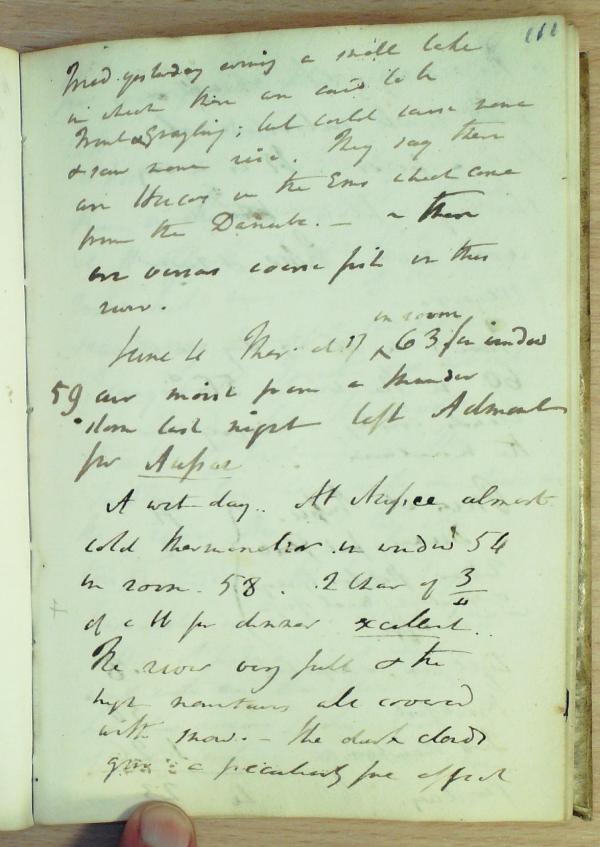 111
Tried yesterday evening a small lake
in which there are said to be
Trout & Grayling; but could cause none
& saw none rise. They say there
are Hucos in the Ens which come
from the Danube. — & there
are various coarse fish in this
river.
June 4 Ther. at 7 in room 63 in window
59 air moist from a thunder
storm last night left Admont
for Aussee
A wet day.. At Aussee almost
cold thermometer in window 54
in room. 58. 2 Char of 3/4
of a lb for dinner excellent..
The river very full & the
high mountains all covered
with snow. – the dark clouds
give a peculiarly fine effect